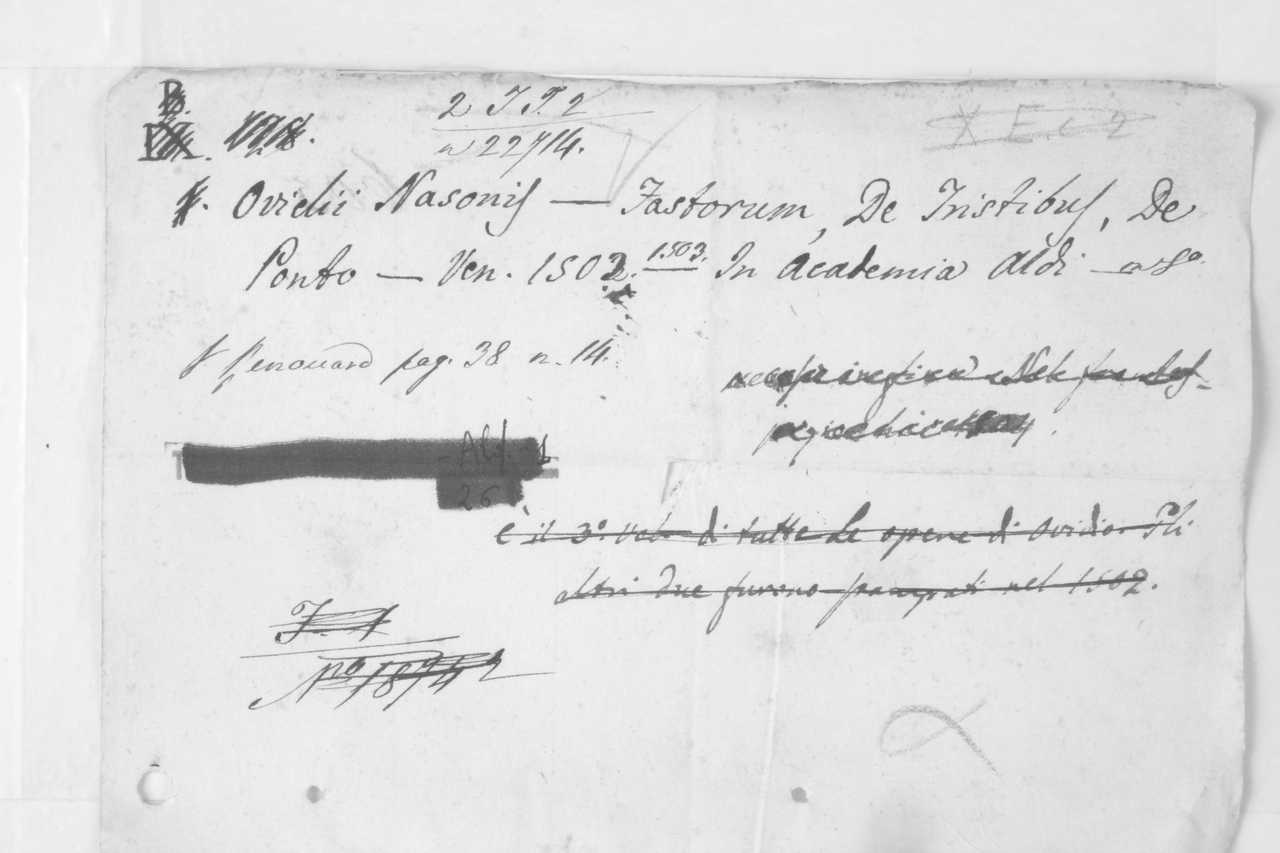 B.
2 J T. 2
n 22714.
X E. c 2
Ovidii Nasonis — Fastorum, De Tristibus, De
Ponto — Ven. 1502. 1503. In Academia Aldi — in 8º
Renouard pag. 38 n. 14.
Ald. 1
26
è il 3º vol. di tutte le opere di Ovidio Gli
altri due furono stampati nel 1502.
Nº 18742